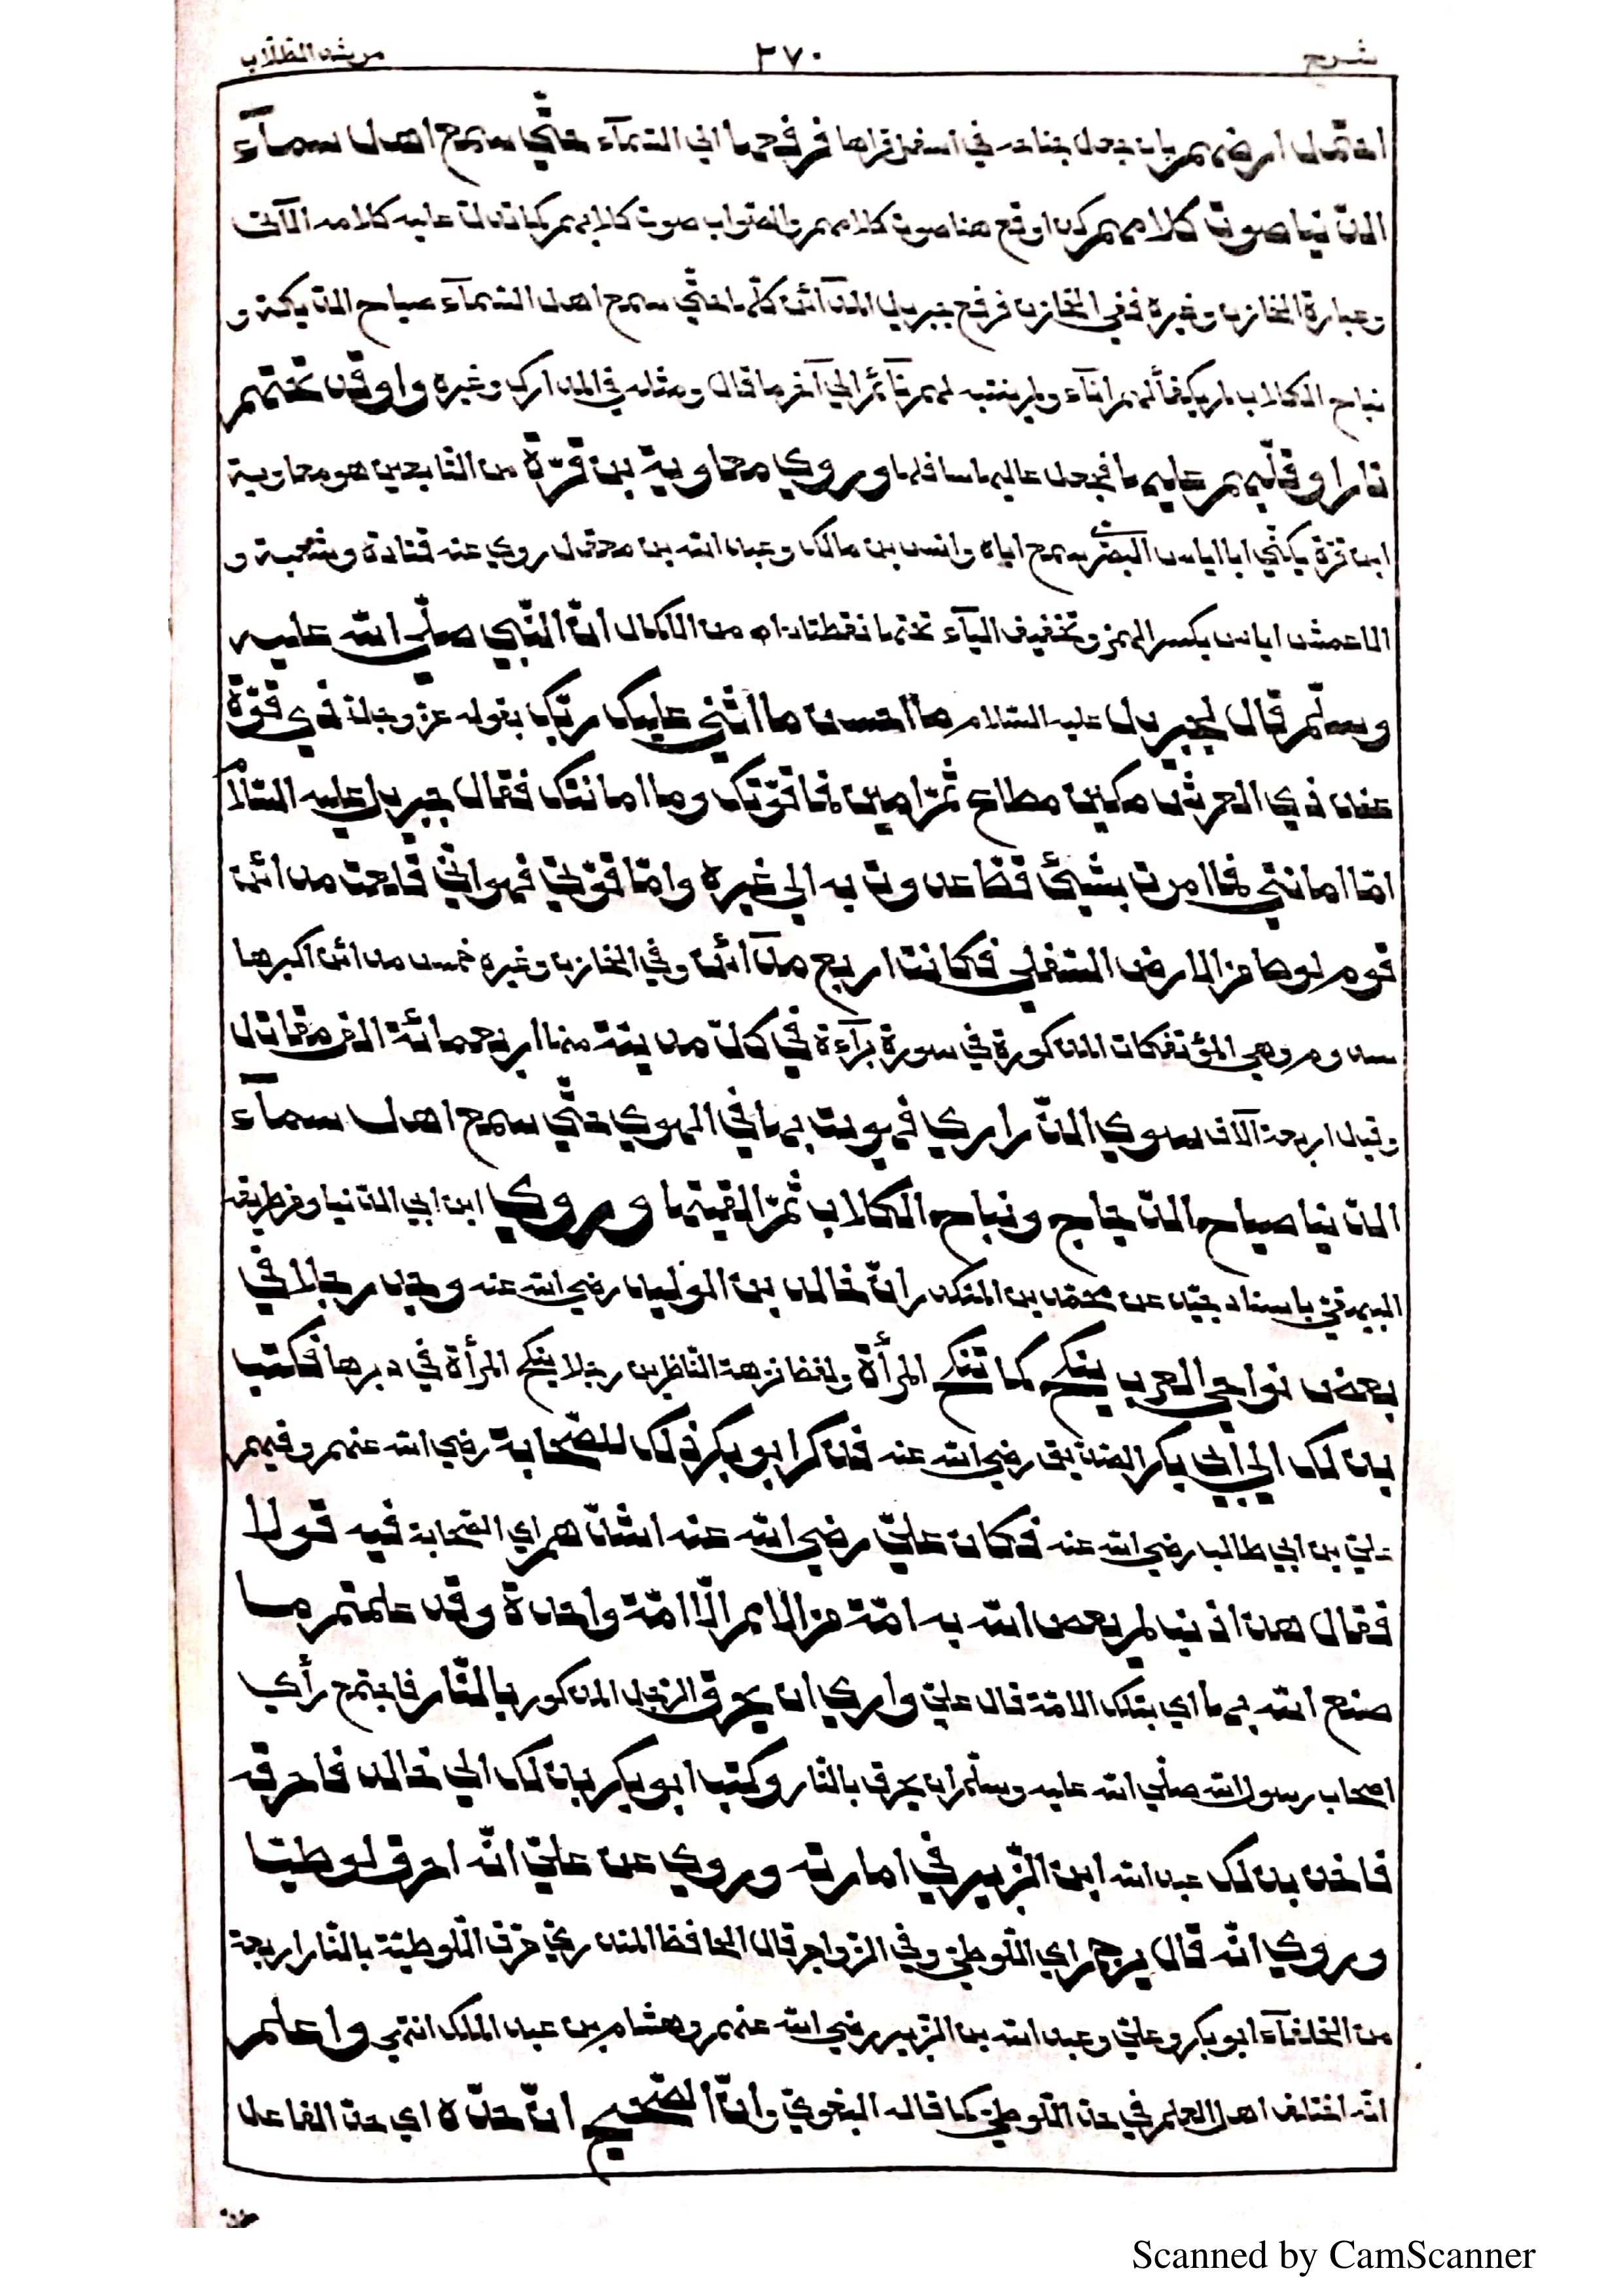 شرح ٣٧٠ مرشد الطلاب
احتمل ارضهم بان جعل جناحه في اسفل قراها فرفعها الى السمآء حتّي سمع اهل سمآء
الدّنيا صوت كلامهم كذا وقع هنا صوت كلامهم والصّواب صوت كلابهم كما تدلّ عليه كلامه الآتى
وعبارة الخازن وغيره ففى الخازن فرفع جبريل المدآئن كلّها حتّي سمع اهل السّمآء صياح الديكة و
نباح الكلاب لم يكفأ لهم انآء ولم ينتبه لهم نآئم الي آخر ما قال ومثله في المدارك وغيره واوقد تحتهم
نارا وقلّبهم عليها فجعل عاليها سافلها وروي معاوية بن قرّة من التابعين هو معاوية
ابن قرّة يكنّي ابا اياس البصريّ سمع اباه وانس بن مالك وعبد الله بن معقل روي عنه قتادة وشعبة و
الاعمش اياس بكسر الهمز وتخفيف اليآء تحتها نقطتان اه من الاكمال انّ النّبي صلّى الله عليه
وسلّم قال لجبريل عليه السّلام ما احسن ما اثنى عليك ربّك بقوله عزّ وجلّ ذي قوّة
عند ذي العرش مكين مطاع ثمّ امين فما قوّتك وما امانتك فقال جبريل عليه السّلام
امّا امانتي فما امرت بشيئ قطّ عدوت به الي غيره وامّا قوّتي فهو انّي قلعت مدائن
قوم لوط من الارض السّفلي فكانت اربع مدآئن وفي الخازن وغيره خمس مدائن اكبرها
سدوم وهي المؤتفكات المذكورة في سورة برآءة في كلّ مدينة منها اربعمائة الف مقاتل
وقيل اربعة آلاف سوي الذّراري فهويت بها في الهوي حتّي سمع اهل سمآء
الدّنيا صياح الدّجاج ونباح الكلاب ثمّ القيتها وروي ابن ابي الدّنيا ومن طريقه
البيهقيّ باسناد جيّد عن محمّد بن المنكدر انّ خالد بن الوليد رضي الله عنه وجد رجلا في
بعض نواحى العرب ينكح كما تنكح المرأة ولفظ نزهة النّاظرين رجلا ينكح المرأة في دبرها فكتب
بذلك الي ابي بكر الصّدّيق رضي الله عنه فذكر ابو بكر ذلك للصّحابة رضي الله عنهم وفيهم
عليّ بن ابي طالب رضي الله عنه فكان عليّ رضي الله عنه اشدّهم اي الصّحابة فيه قولا
فقال هذا ذنب لم يعص الله به امّة من الامم الّا امّة واحدة وقد علمتم ما
صنع الله بها اي بتلك الامّة قال عليّ واري ان يحرق الرّجل المذكور بالنّار فاجتمع رأي
اصحاب رسول الله صلّي الله عليه وسلّم ان يحرق بالنّار وكتب ابو بكر بذلك الي خالد فاحرقه
فاخذ بذلك عبد الله ابن الزّبير في امارته وروي عن عليّ انّه احرق لوطيّا
وروي انّه قال يرجم اي اللّوطيّ وفي الزّواجر قال الحافظ المنذريّ حرق اللّوطيّة بالنّار اربعة
من الخلفآء ابو بكر وعليّ وعبد الله بن الزّبير رضي الله عنهم وهشام بن عبد الملك انتهي واعلم
انّه اختلف اهل العلم في حدّ اللّوطيّ كما قاله البغويّ وانّ الصّحيح انّ حدّه اي حدّ الفاعل
Scanned by CamScanner